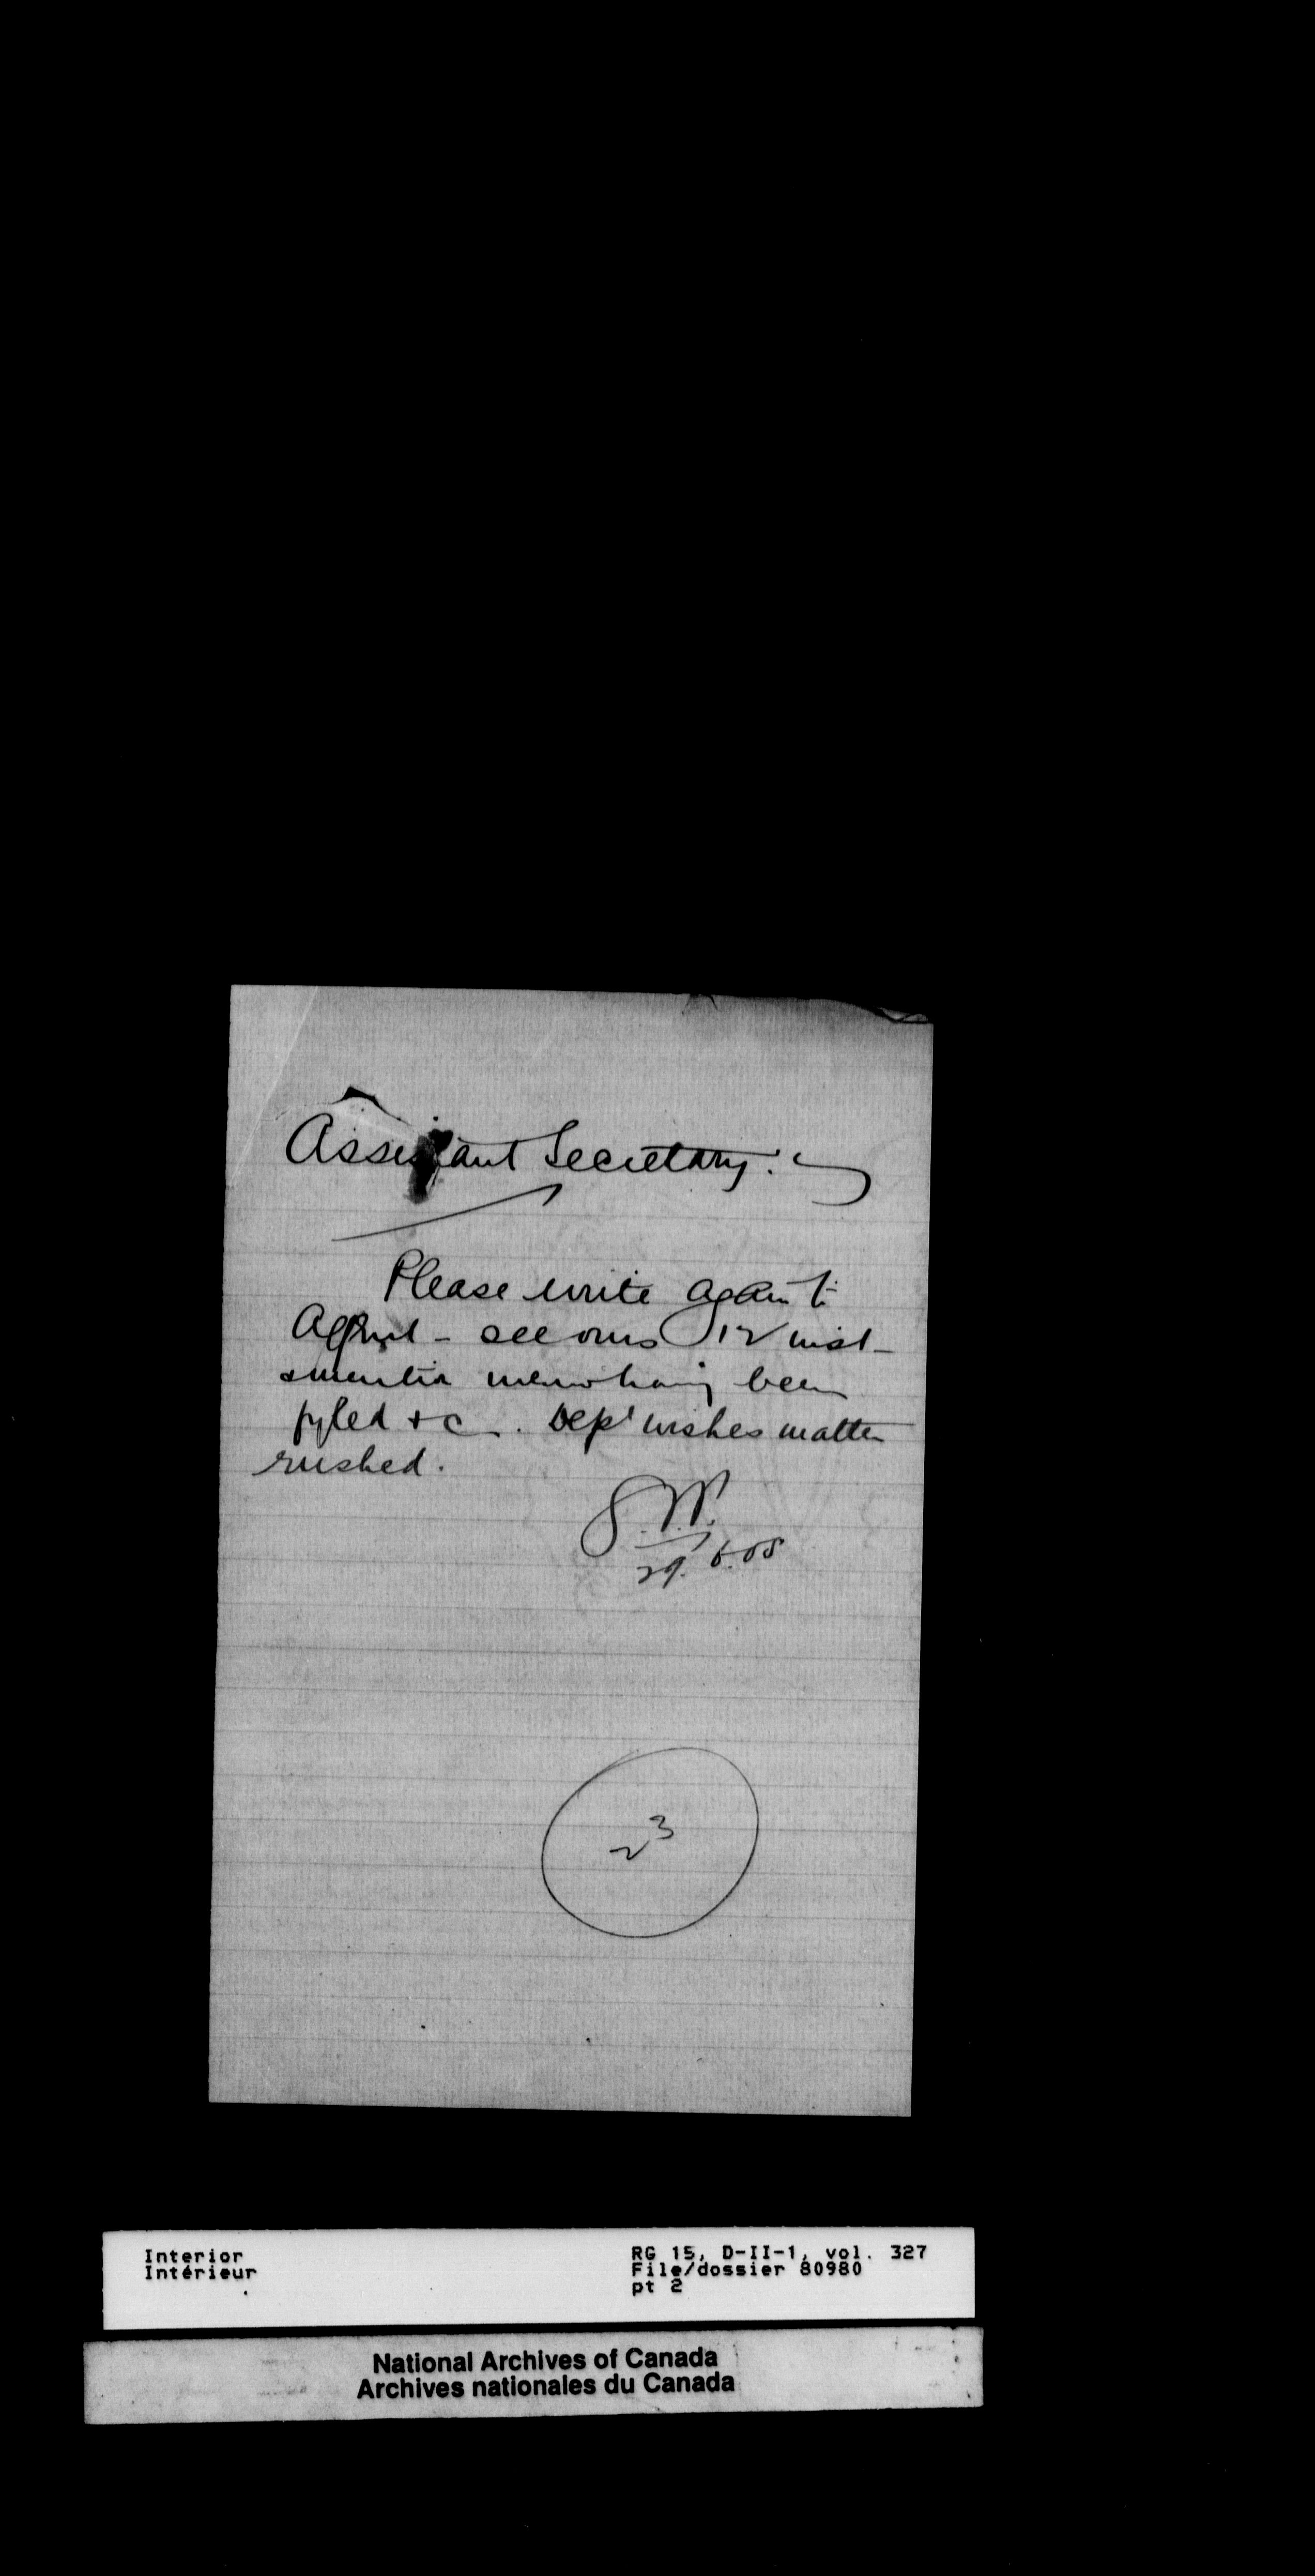 Assistant Secretary:
Please write again to
Agent - see ours 12 inst -
& mention memo having been
fyled & c. Dept wishes matter
rushed.
29. 08
23
Interior
Intérieur
RG 15, D-II-1, vol. 327
File/dossier 80980
pt 2
National Archives of Canada
Archives nationales du Canada